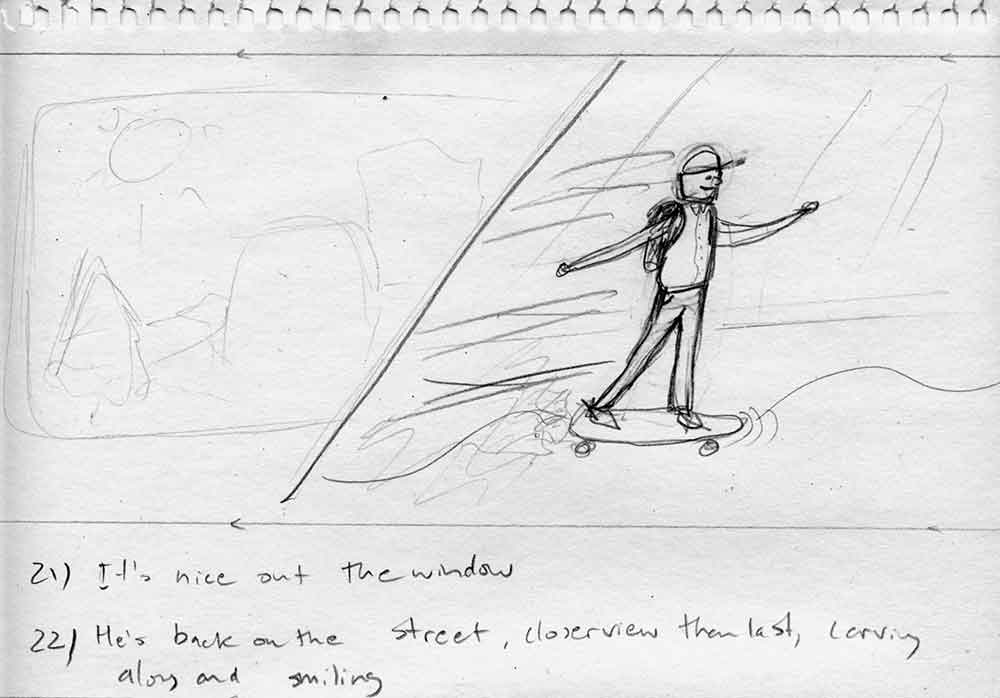 21) It's nice out the window
22) He's back on the street, closerview than last, carving
along and smiling